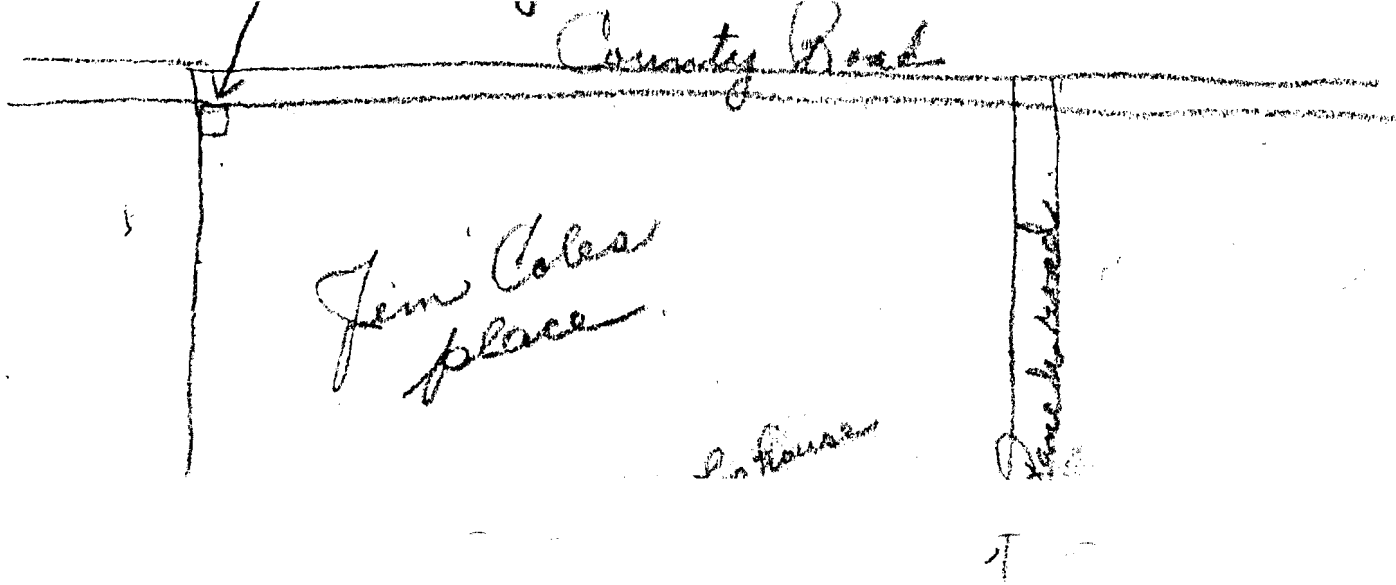 County Road
Jim Coles
place
house
Ranch road